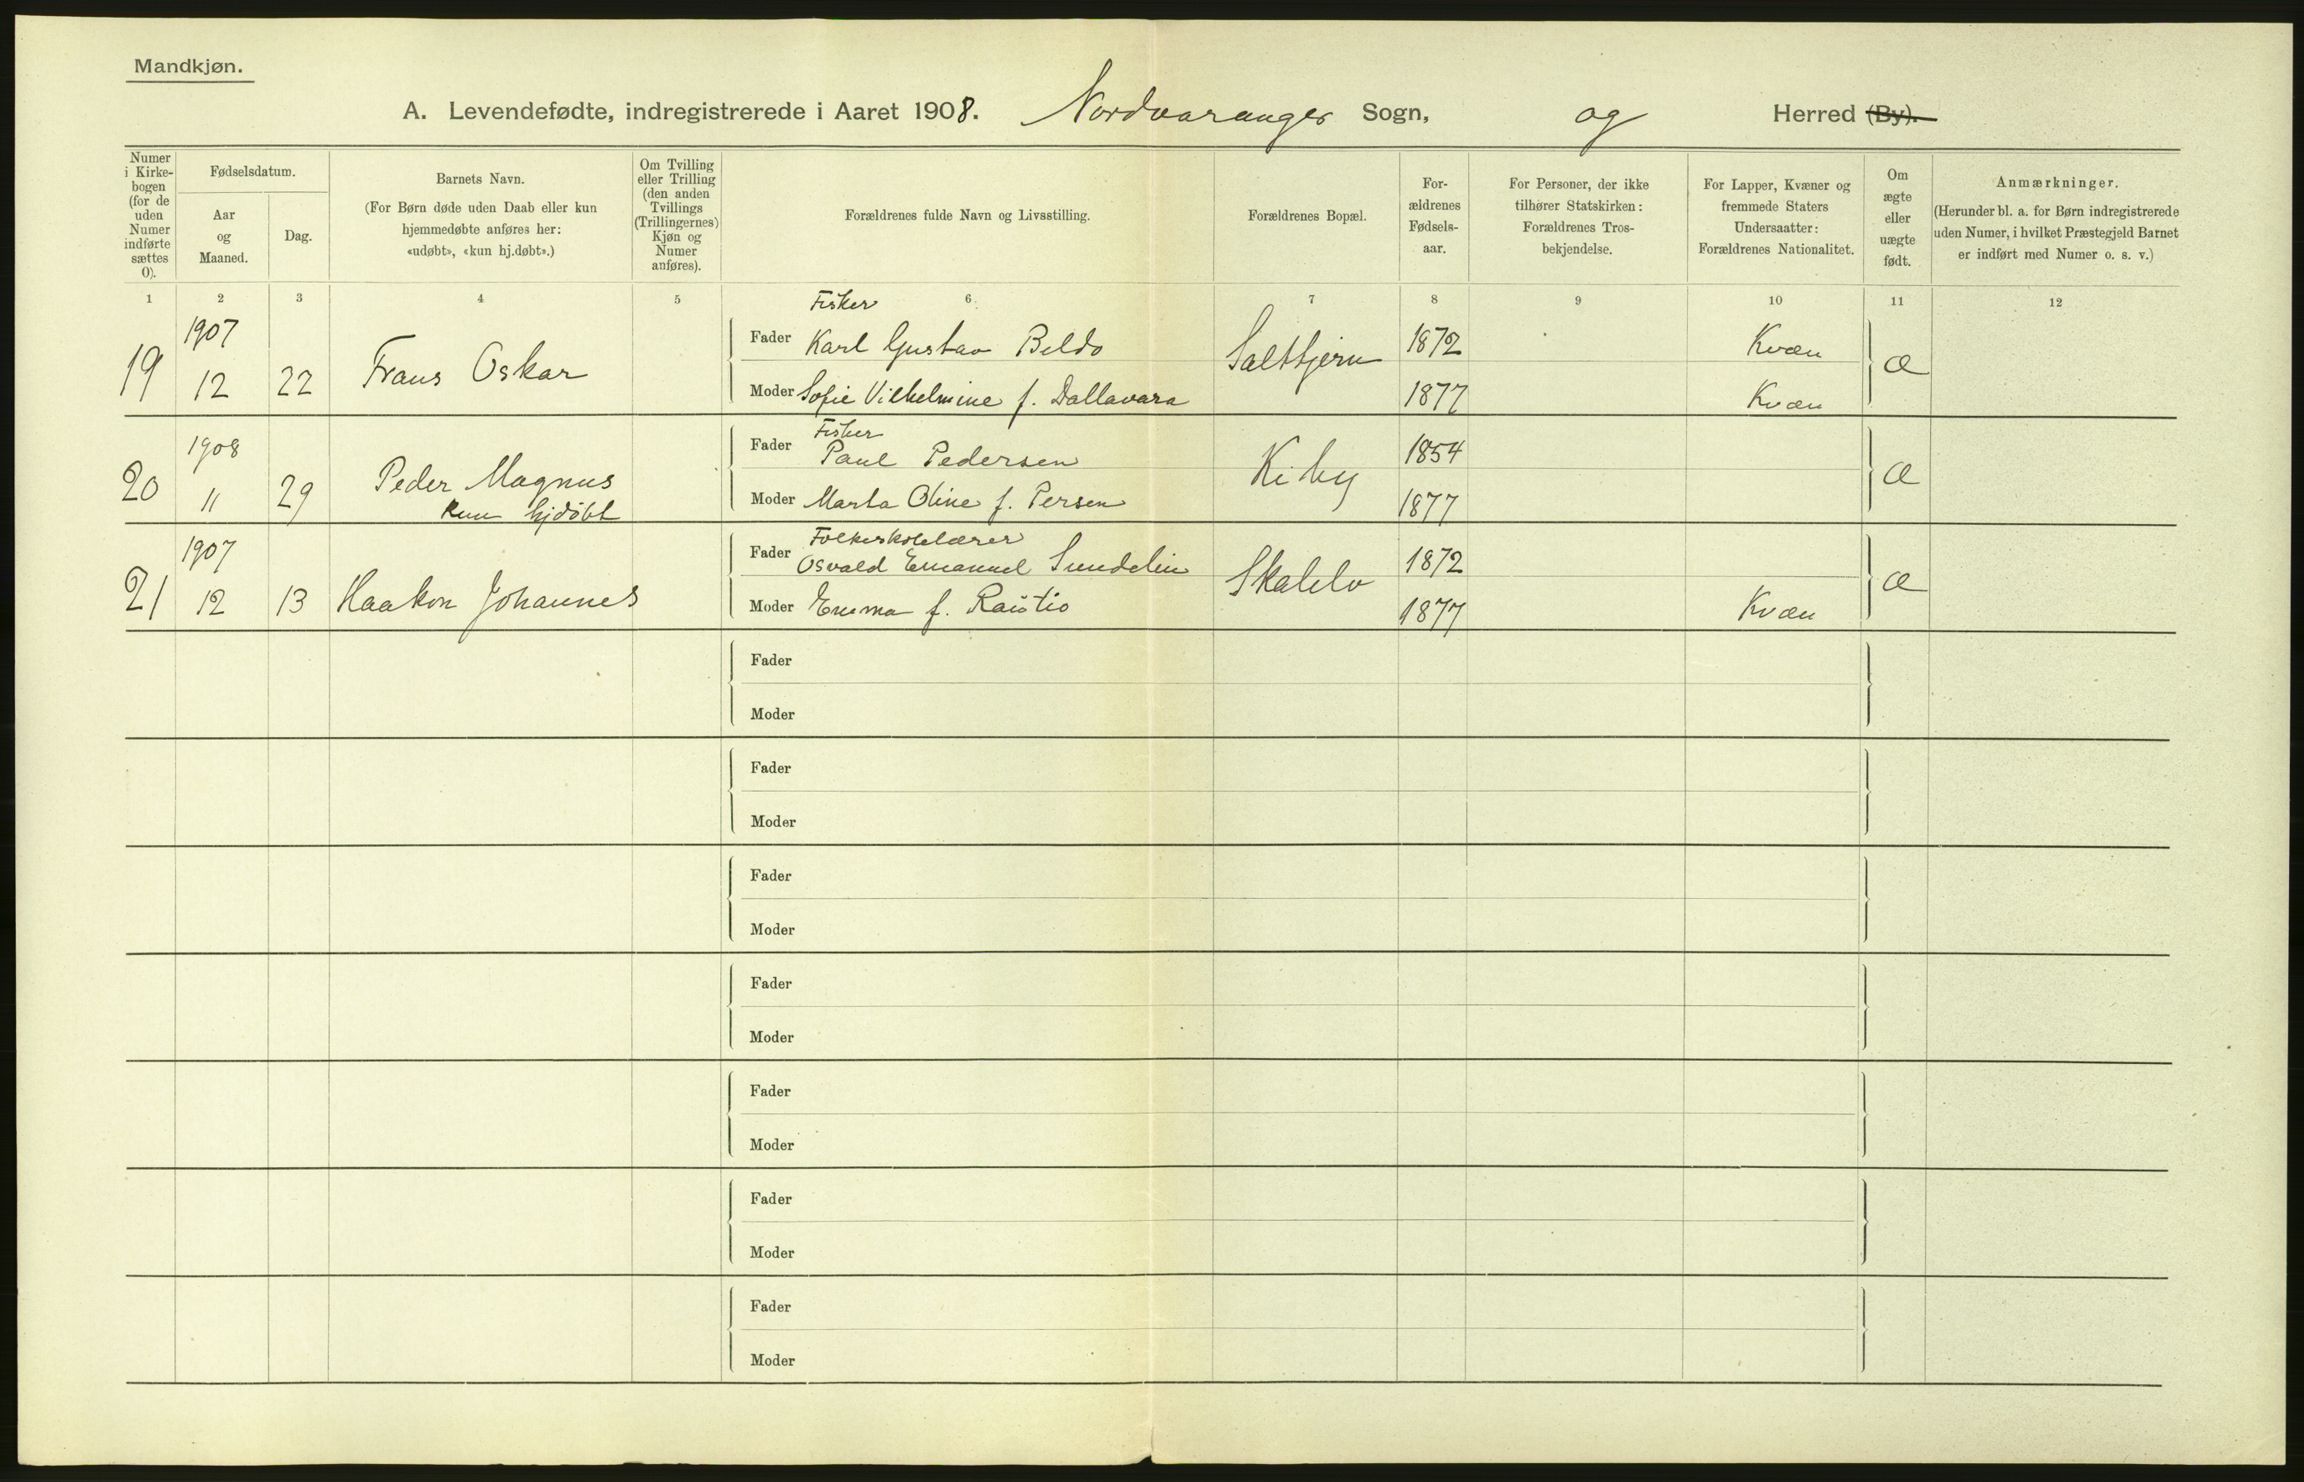 Mandkjøn.
A. Levendefødte, indregistrerede i Aaret 1908. Nordvaranger Sogn, og Herred (By).
Numer i Kirkebogen (for de uden Numer indførte sættes 0).
Fødselsdatum.
Aar og Maaned.
Dag.
Barnets Navn.
(For Børn døde uden Daab eller kun hjemmedøbte anføres her: «udøbt», «kun hj.døbt».)
Om Tvilling eller Trilling (den anden Tvillings (Trillingernes) Kjøn og Numer anføres).
Forældrenes fulde Navn og Livsstilling.
Forældrenes Bopæl.
Forældrenes Fødselsaar.
For Personer, der ikke tilhører Statskirken: Forældrenes Trosbekjendelse.
For Lapper, Kvæner og fremmede Staters Undersaatter: Forældrenes Nationalitet.
Om ægte eller uægte født.
Anmærkninger.
(Herunder bl. a. for Børn indregistrerede uden Numer, i hvilket Præstegjeld Barnet er indført med Numer o. s. v.)
1 2 3 4 5 6 7 8 9 10 11 12
Fisker
1907
Fader Karl Gustav Beldo 1872 Kvæn
19 12 22 Frans Oskar Saltbjern æ
Moder Sofie Vilhelmine f. Dallavara 1877 Kvæn
Fisker
1908
Fader Paul Pedersen 1854
20 11 29 Peder Magnus Kiby æ
kun hjdøbt
Moder Marta Oline f. Persen 1877
Folkeskolelærer
1907
Fader Osvald Emanuel Sundelin 1872
21 12 13 Haakon Johannes Skalelv æ
Moder Emma f. Raütio 1877 Kvæn
Fader
Moder
Fader
Moder
Fader
Moder
Fader
Moder
Fader
Moder
Fader
Moder
Fader
Moder